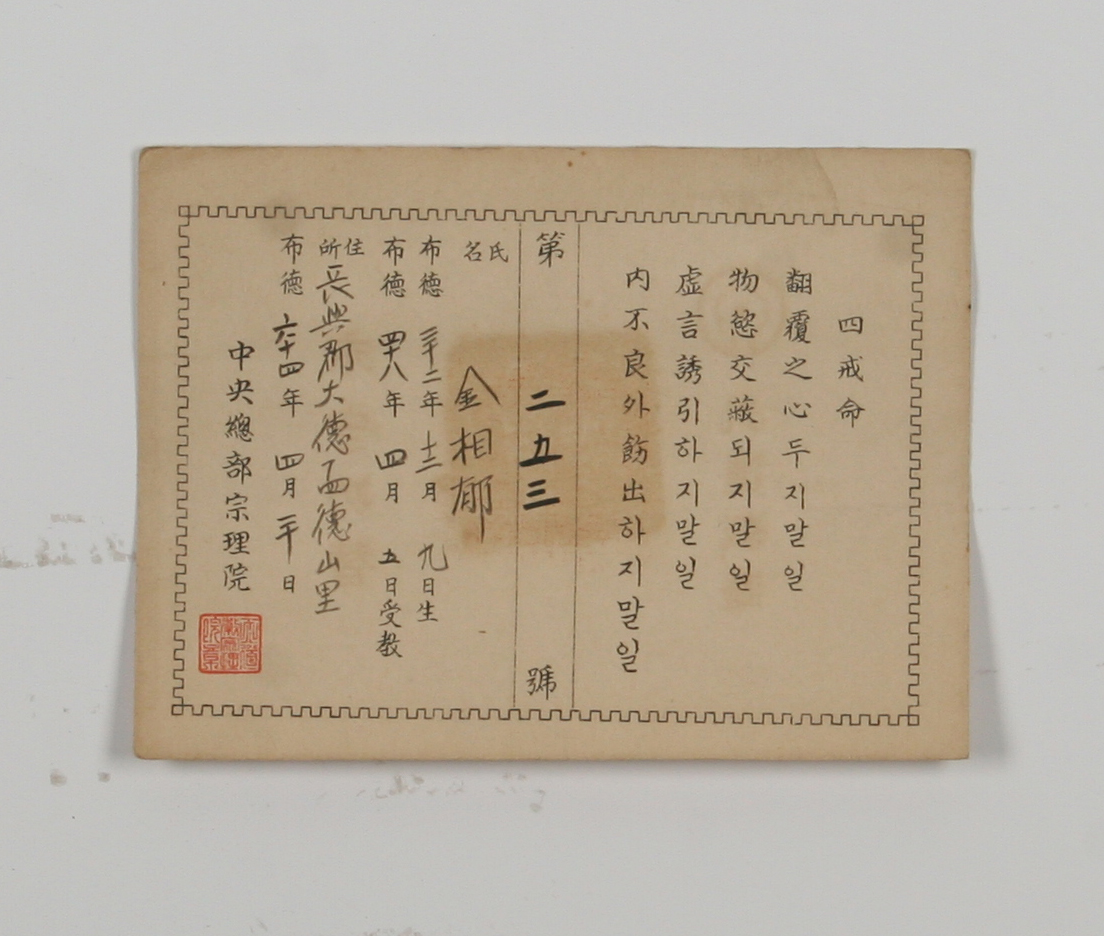 四戒命
翻覆之心두지말일
物慾交蔽되지말일
虛言誘引하지말일
內不良外飭出하지말일
第 二九三 號
氏名 金相郁
布德 三十二年 十二月 九日生
布德 四十八年 四月 五日受教
住所 長興郡大德面德山里
布德 六十四年 四月 二十日
中央總部宗理院